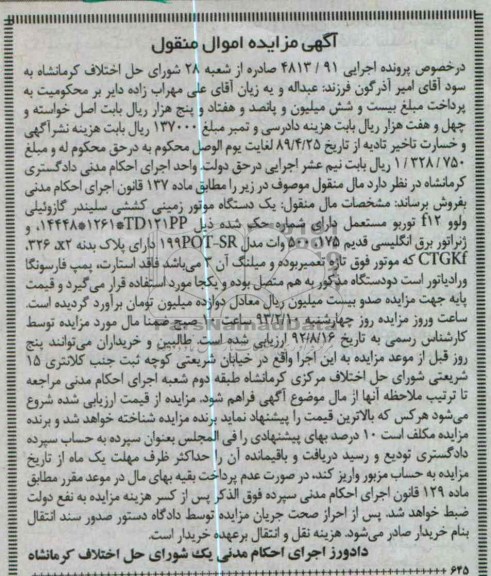 آگهی مزایده اموال منقول
درخصوص پرونده اجرایی ۹۱ / ۴۸۱۳ صادره از شعبه ۲۸ شورای حل اختلاف کرمانشاه به
سود آقای امیر آذرگون فرزند: عبداله و به زیان آقای علی مهراب زاده دایر بر محکومیت به
پرداخت مبلغ بیست و شش میلیون و پانصد و هفتاد و پنج هزار ریال بابت اصل خواسته و
چهل و هفت هزار ریال بابت هزینه دادرسی و تمبر مبلغ ۱۳۷۰۰۰ ریال بابت هزینه نشرآگهی
و خسارت تاخیر تادیه از تاریخ ۸۹/۴/۲۵ لغایت یوم الوصل محکوم به درحق محکوم له و مبلغ
۱/۳۲۸/۷۵۰ ریال بابت نیم عشر اجرایی درحق دولت. واحد اجرای احکام مدنی دادگستری
کرمانشاه در نظر دارد مال منقول موصوف در زیر را مطابق ماده ۱۳۷ قانون اجرای احکام مدنی
بفروش برساند: مشخصات مال منقول: یک دستگاه موتور زمینی کششی سلیندر گازوئیلی
ولوو f۱۲ توربو مستعمل دارای شماره حک شده ذیل TD۱۲۱PP*۱۲۶۱*۱۴۴۴۸، و
ژنراتور برق انگلیسی قدیم ۱۷۵-۵۰۰ وات مدل ۱۹۹POT-SR دارای پلاک بدنه x۲، ۳۲۶،
CTGKf که موتور فوق تازه تعمیربوده و میلنگ آن ۲ می‌باشد فاقد استارت، پمپ فارسونگا
ورادیاتور است دودستگاه مذکور به هم متصل بوده و یکجا مورد استفاده قرار می‌گیرد و قیمت
پایه جهت مزایده صدو بیست میلیون ریال معادل دوازده میلیون تومان برآورد گردیده است.
ساعت وروز مزایده روز چهارشنبه ۹۳/۲/۱۰ ساعت ۱۰ صبح ضمنا مال مورد مزایده توسط
کارشناس رسمی به تاریخ ۹۲/۸/۱۶ ارزیابی شده است. طالبین و خریداران می‌توانند پنج
روز قبل از موعد مزایده به این اجرا واقع در خیابان شریعتی کوچه ثبت جنب کلانتری ۱۵
شریعتی شورای حل اختلاف مرکزی کرمانشاه طبقه دوم شعبه اجرای احکام مدنی مراجعه
تا ترتیب ملاحظه آنها از مال موضوع آگهی فراهم شود. مزایده از قیمت ارزیابی شده شروع
می‌شود هرکس که بالاترین قیمت را پیشنهاد نماید برنده مزایده شناخته خواهد شد و برنده
مزایده مکلف است ۱۰ درصد بهای پیشنهادی را فی المجلس بعنوان سپرده به حساب سپرده
دادگستری تودیع و رسید دریافت و باقیمانده آن را حداکثر ظرف مهلت یک ماه از تاریخ
مزایده به حساب مزبور واریز کند، در صورت عدم پرداخت بقیه بهای مال در موعد مقرر مطابق
ماده ۱۲۹ قانون اجرای احکام مدنی سپرده فوق الذکر پس از کسر هزینه مزایده به نفع دولت
ضبط خواهد شد. پس از احراز صحت جریان مزایده توسط دادگاه دستور صدور سند انتقال
بنام خریدار صادر می‌شود. هزینه نقل و انتقال برعهده خریدار است.
دادورز اجرای احکام مدنی یک شورای حل اختلاف کرمانشاه
۶۴۵